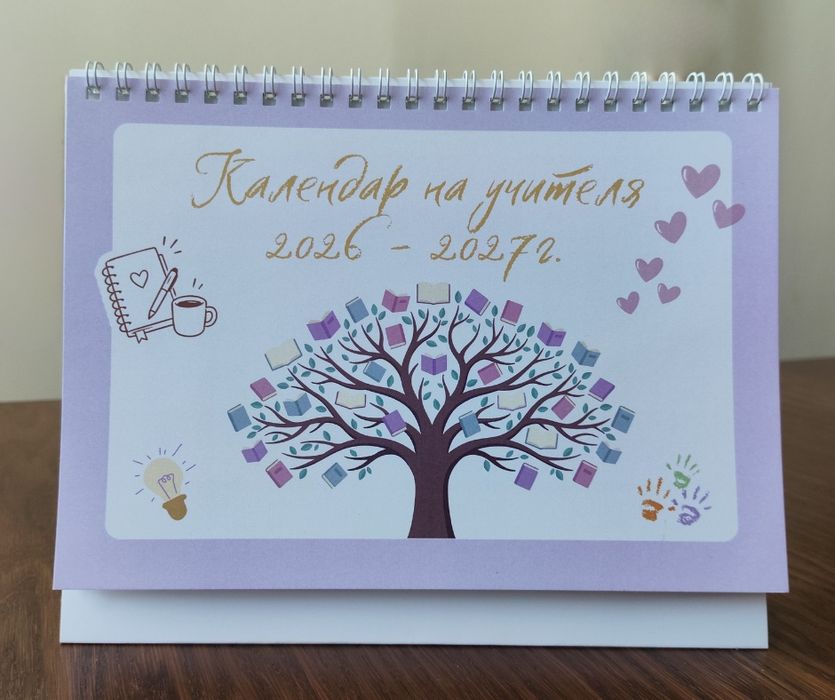 Календар на учителя
2026 - 2027г.